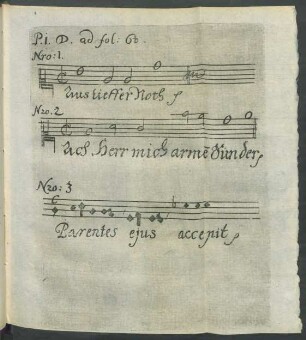 P. I. D. ad fol: 60.
Nro: 1.
Aus tieffer Noth
Nro: 2
Ach Herr mich armē Sünder
Nro: 3
Parentes ejus accepit